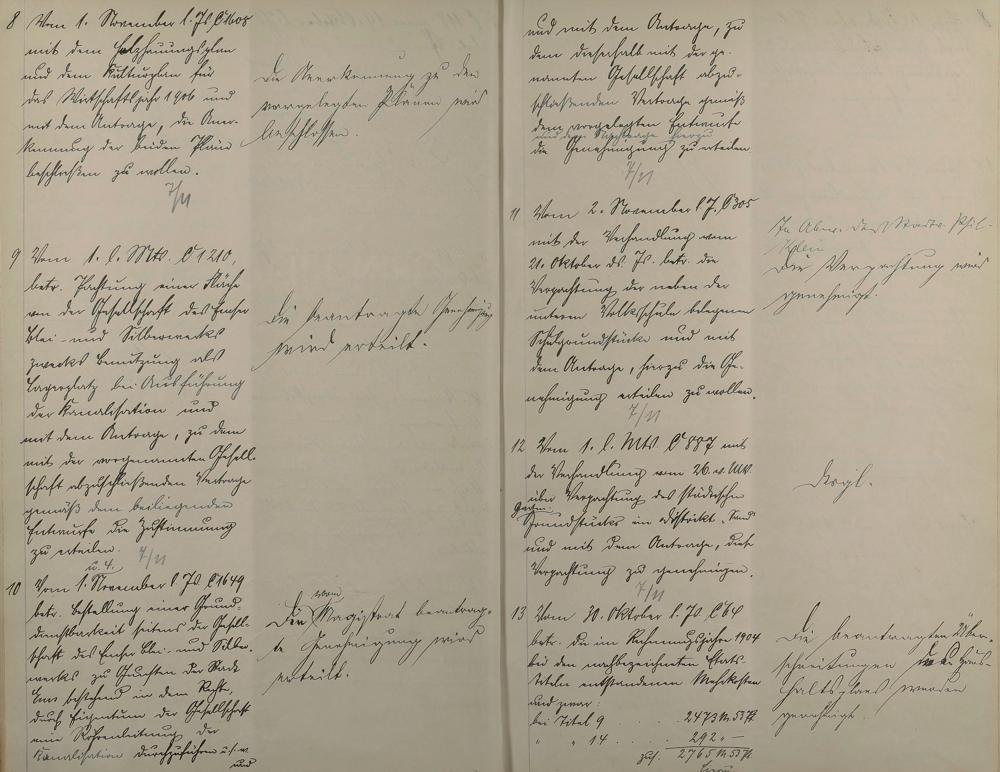 8 Vom 1. November l. Js. C 1605
mit dem Holzhauungsplan
und dem Kulturplan für
das Wirtschaftsjahr 1906 und
mit dem Antrage, die Aner-
kennung der beiden Pläne
beschließen zu wollen.
7/11
Die Anerkennung zu den
vorgelegten Plänen wird
beschlossen.
9 Vom 1. l. Mts. C 1210,
betr. Pachtung einer Fläche
von der Gesellschaft des Emser
Blei- und Silberwerks
zwecks Benutzung als
Lagerplatz bei Ausführung
der Kanalisation und
mit dem Antrage, zu dem
mit der vorgenannten Gesell-
schaft abzuschließenden Vertrage
gemäß dem beiliegenden
Entwurfe die Zustimmung
zu erteilen.
7/11
Die beantragte Genehmigung
wird erteilt.
10 Vom 1. November l. Js. C 1649
betr. Bestellung einer Grund-
dienstbarkeit seitens der Gesell-
schaft des Emser Blei- und Silber-
werks zu Gunsten der Stadt
Ems bestehend in dem Rechte,
durch Eigentum der Gesellschaft
eine Rohrenleitung der
Kanalisation durchzuführen u.s.w.
und
Die vom Magistrat beantrag-
te Genehmigung wird
erteilt.
und mit dem Antrage, zu
dem dieserhalb mit der ge-
nannten Gesellschaft abzu-
schließenden Vertrage gemäß
dem vorgelegten Entwurfe
und dem Nachtrage hierzu
die Genehmigung zu erteilen
7/11
11 Vom 2. November l. J. C 305
mit der Verhandlung vom
21. Oktober ds. Js. betr. die
Verpachtung der neben der
unteren Volksschule belegenen
Schulgrundstücke und mit
dem Antrage, hierzu die Ge-
nehmigung erteilen zu wollen.
7/11
In Abw. des Stadtv. Phil.
Klein
Die Verpachtung wird
genehmigt.
12 Vom 1. l. Mts C 887 mit
der Verhandlung vom 26. v. Mts.
über Verpachtung des städtischen
Grundstücks im Distrikt
und mit dem Antrage, diese
Verpachtung zu genehmigen.
7/11
Desgl.
13 Vom 30. Oktober l. Js. C 64
betr. die im Rechnungsjahre 1904
bei den nachbezeichneten Etats-
titeln entstandenen Mehrkosten
und zwar:
bei Titel 9 . . . 2473 M. 53 Pf.
" " 14 . . . 292 " —
zus. 2765 M 53 Pf.
Die beantragten Über-
schreitungen des Haus-
haltsplanes werden
genehmigt.